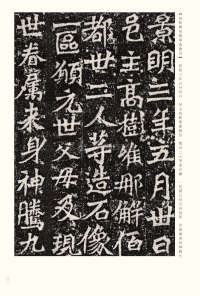 景明三年五月卅日
邑主高樹維那解佰
都卅二人等造石像
一區願元世父母及現
世眷屬来身神騰九